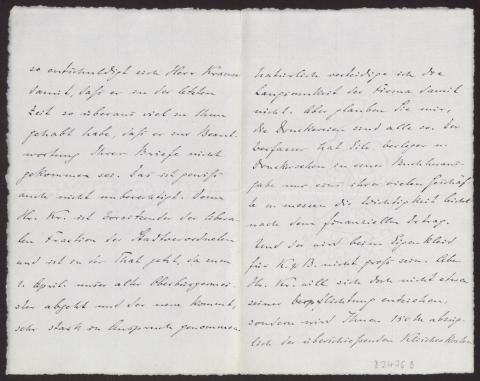 so entschuldigt sich Herr Kramer
damit, daß er in der letzten
Zeit so überaus viel zu thun
gehabt habe, daß er zur Beant-
wortung Ihrer Briefe nicht
gekommen sei. Das ist gewiß
auch nicht unberechtigt. Denn
Hr. Kr. ist Vorsitzender der libera-
len Fraction der Stadtverordneten
und ist in der That jetzt, da zum
1. April unser alter Oberbürgermei-
ster abgeht und der neue kommt,
sehr stark in Anspruch genommen.
Natürlich verteidige ich die
Langsamkeit der Firma damit
nicht. Aber glauben Sie mir,
die Druckereien sind alle so. Der
Verfasser hat
Druckersehen in einer Buchheraus-
gabe nur eins ihrer vielen Geschäf-
te u messen die Wichtigkeit leicht
nach dem finanziellen Ertrag.
Und der wird beim
für K & B. nicht groß sein. Aber
Hr. Kr. will sich doch nicht etwa
seiner Verpflichtung entziehen,
sondern wird Ihnen 150 M abzüg-
lich der überschießenden Klischeekosten
22476 B